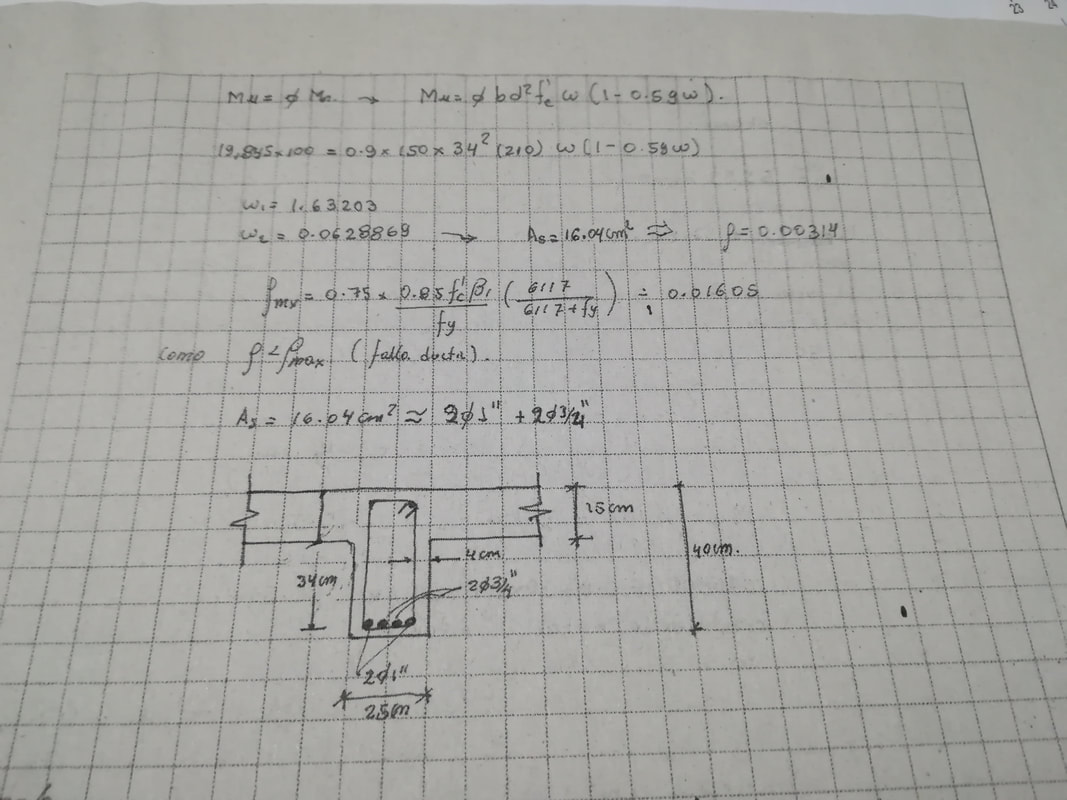 Mu = φ Mn → Mu = φ bd² f'c ω (1 - 0.59ω).
19,845×100 = 0.9 × 150 × 34² (210) ω (1 - 0.59ω)
ω₁ = 1.63203
ω₂ = 0.0628869 → As = 16.04 cm² ⇒ ρ = 0.00314
ρmx = 0.75 × 0.85 f'c β₁ / fy ( 6117 / 6117 + fy ) = 0.01605
como ρ < ρmax (falla ductil).
As = 16.04 cm² ≈ 2φ1" + 2φ3/4"
15cm
40cm.
4cm
34cm
2φ3/4"
2φ1"
25cm